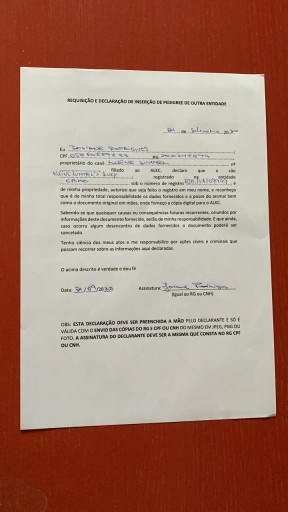 REQUISIÇÃO E DECLARAÇÃO DE INSERÇÃO DE PEDIGREE DE OUTRA ENTIDADE
de Setembro
Eu RODRIGUES
CPF RG
proprietário do canil
filiado ao ALKC, declaro que o cão
registrado na entidade
sob o número de registro , é
de minha propriedade, autorizo que seja feito o registro em meu nome, e reconheço
que é de minha total responsabilidade os dados fornecidos e a posse do animal bem
como o documento original em mãos, onde forneço a cópia digital para o ALKC.
Sabendo se que quaisquer causas ou consequências futuras recorrentes, oriundos por
informações deste documento fornecido, serão de minha responsabilidade. E que ainda,
caso ocorra algum desencontro de dados fornecidos o documento poderá ser
cancelado.
Tenho ciência dos meus atos e me responsabilizo por ações cíveis e criminais que
possam recorrer sobre as informações aqui declaradas.
O acima descrito é verdade e dou fé
Data: Assinatura:
(Igual ao RG ou CNH)
OBS: ESTA DECLARAÇÃO DEVE SER PREENCHIDA A MÃO PELO DECLARANTE E SÓ É
VÁLIDA COM O ENVIO DAS CÓPIAS DO RG E CPF OU CNH DO MESMO EM JPEG, PNG OU
FOTO. A ASSINATURA DO DECLARANTE DEVE SER A MESMA QUE CONSTA NO RG CPF
OU CNH.